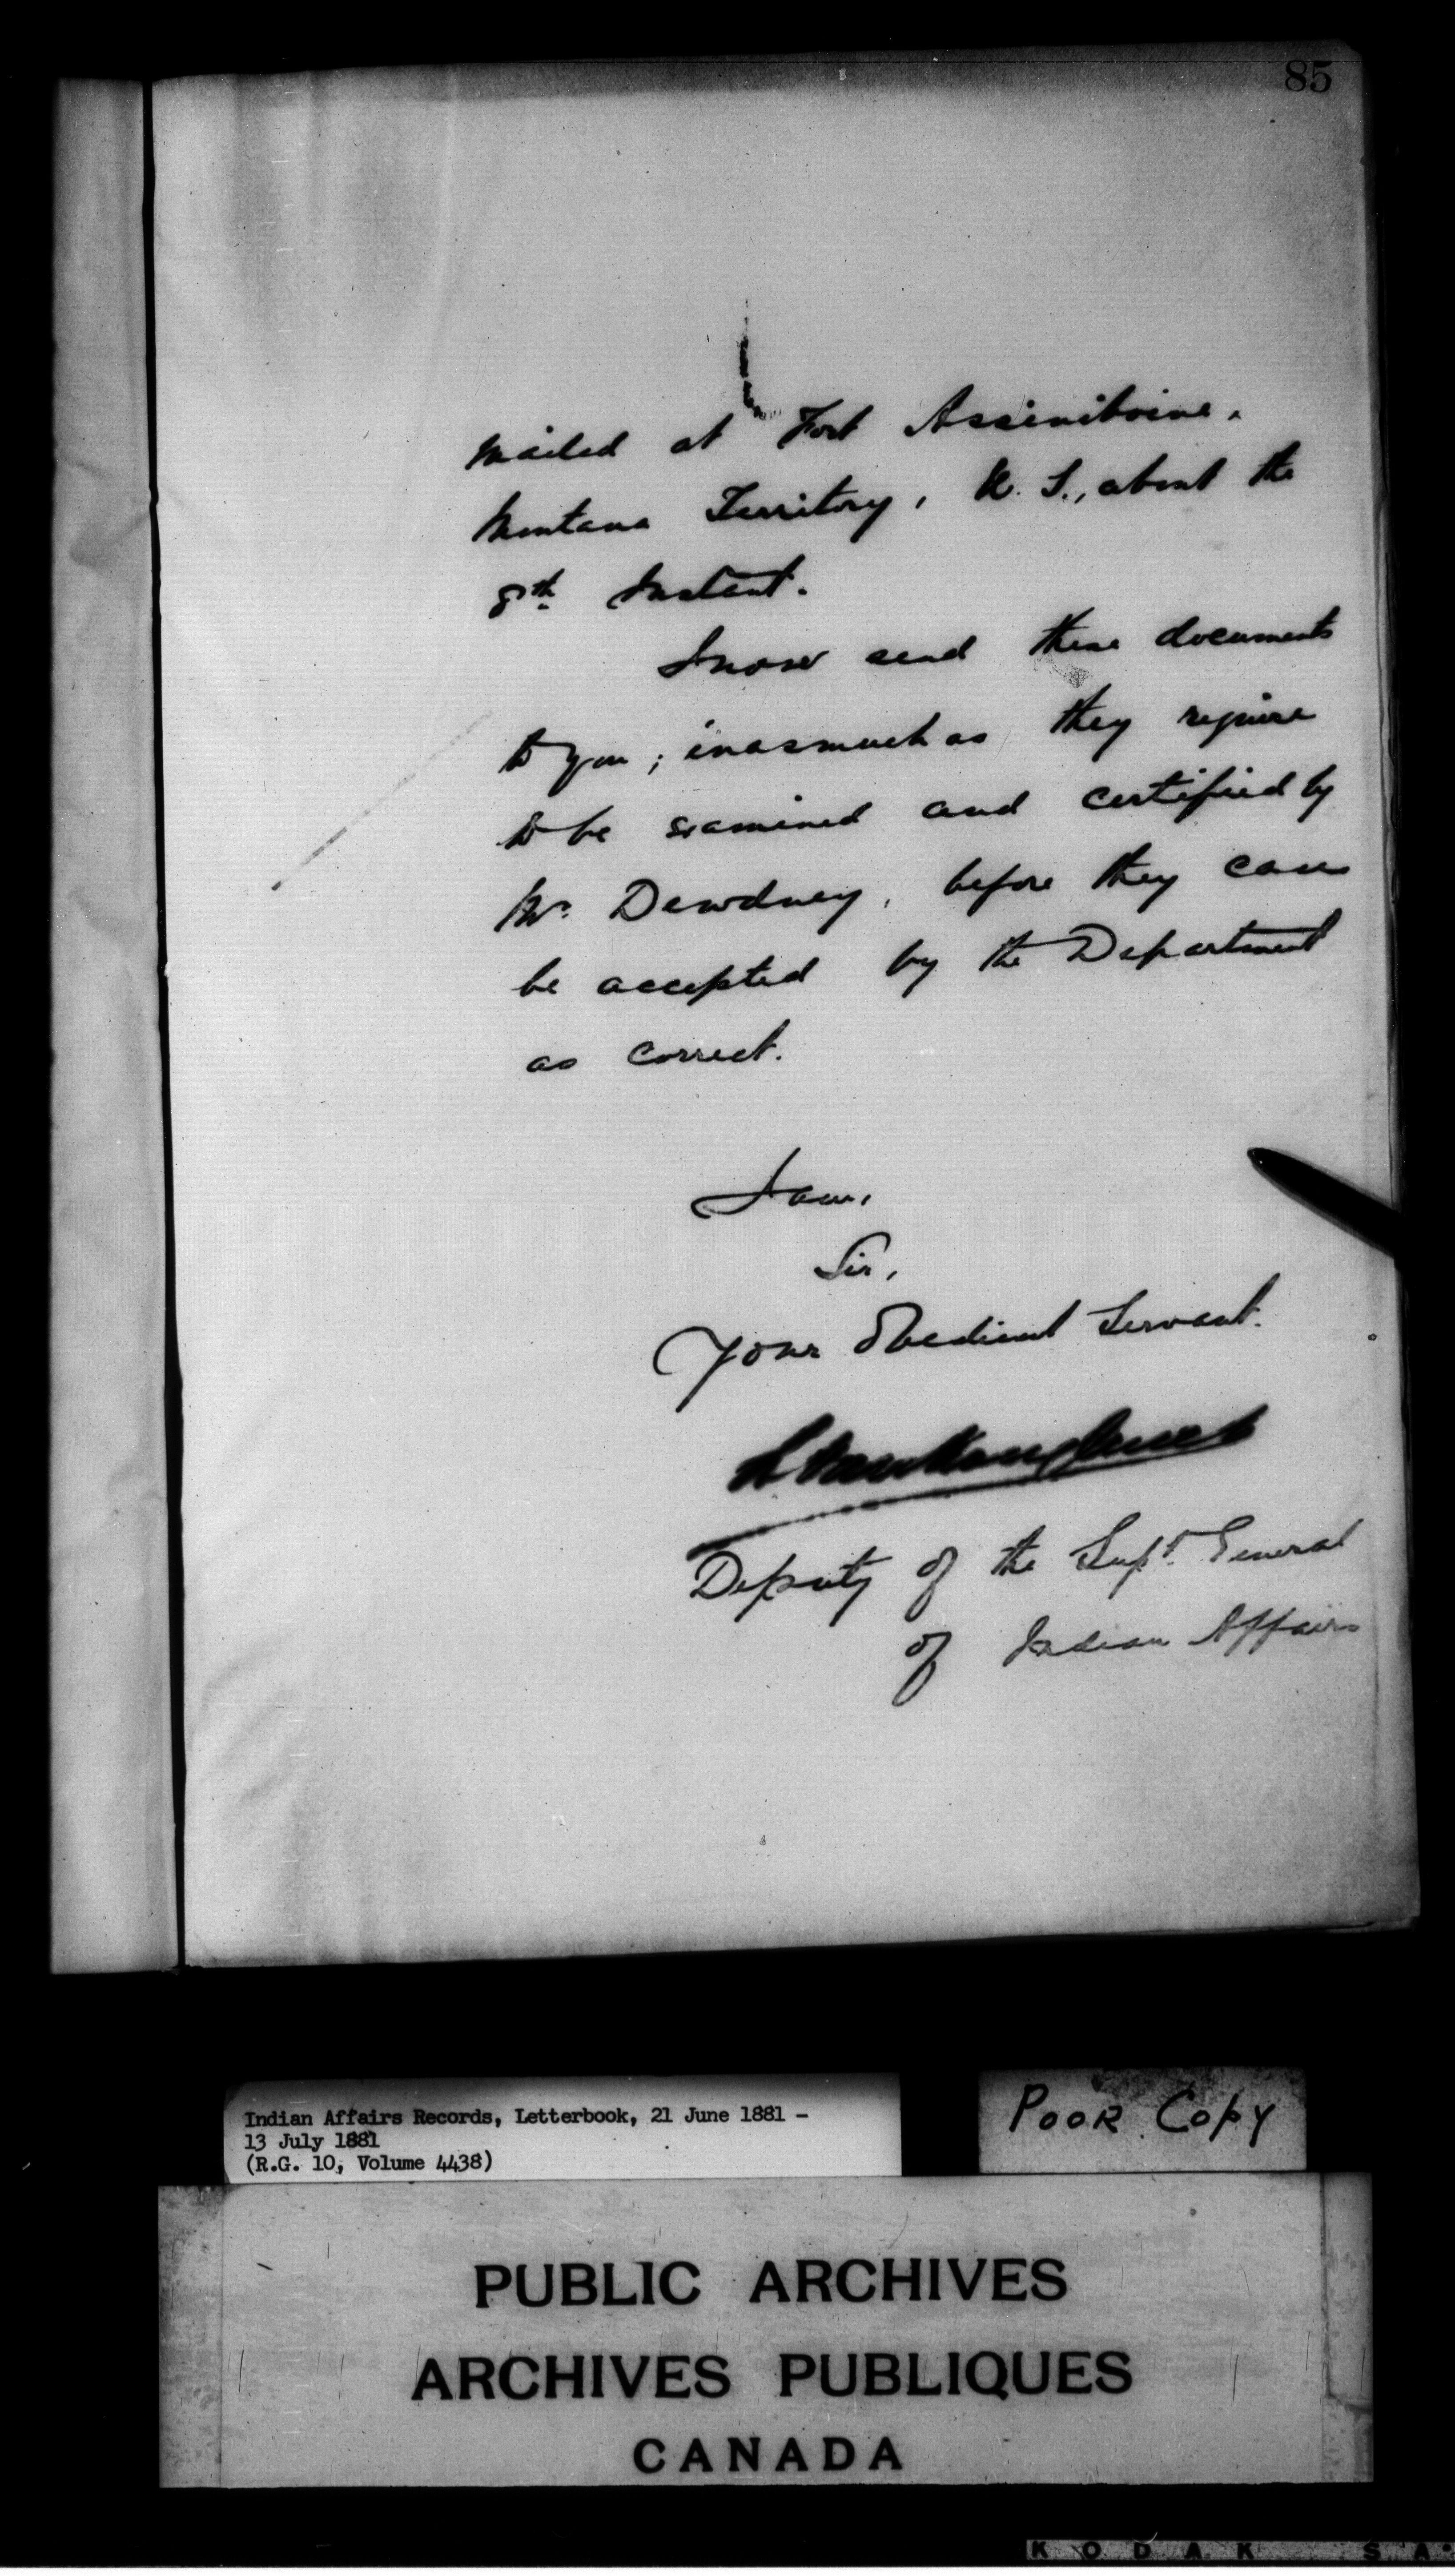 85
Mailed at Fort Assiniboine,
Montana Territory, U. S., about the
8th Instant.
I now send these documents
to you; inasmuch as they require
to be examined and certified by
Mr. Dewdney, before they can
be accepted by the Department
as correct.
I am,
Sir,
Your Obedient Servant.
L Vankoughnet
Deputy of the Supt. General
of Indian Affairs
Indian Affairs Records, Letterbook, 21 June 1881 -
13 July 1881
(R.G. 10, Volume 4438)
POOR Copy
PUBLIC ARCHIVES
ARCHIVES PUBLIQUES
CANADA
KODAK SA